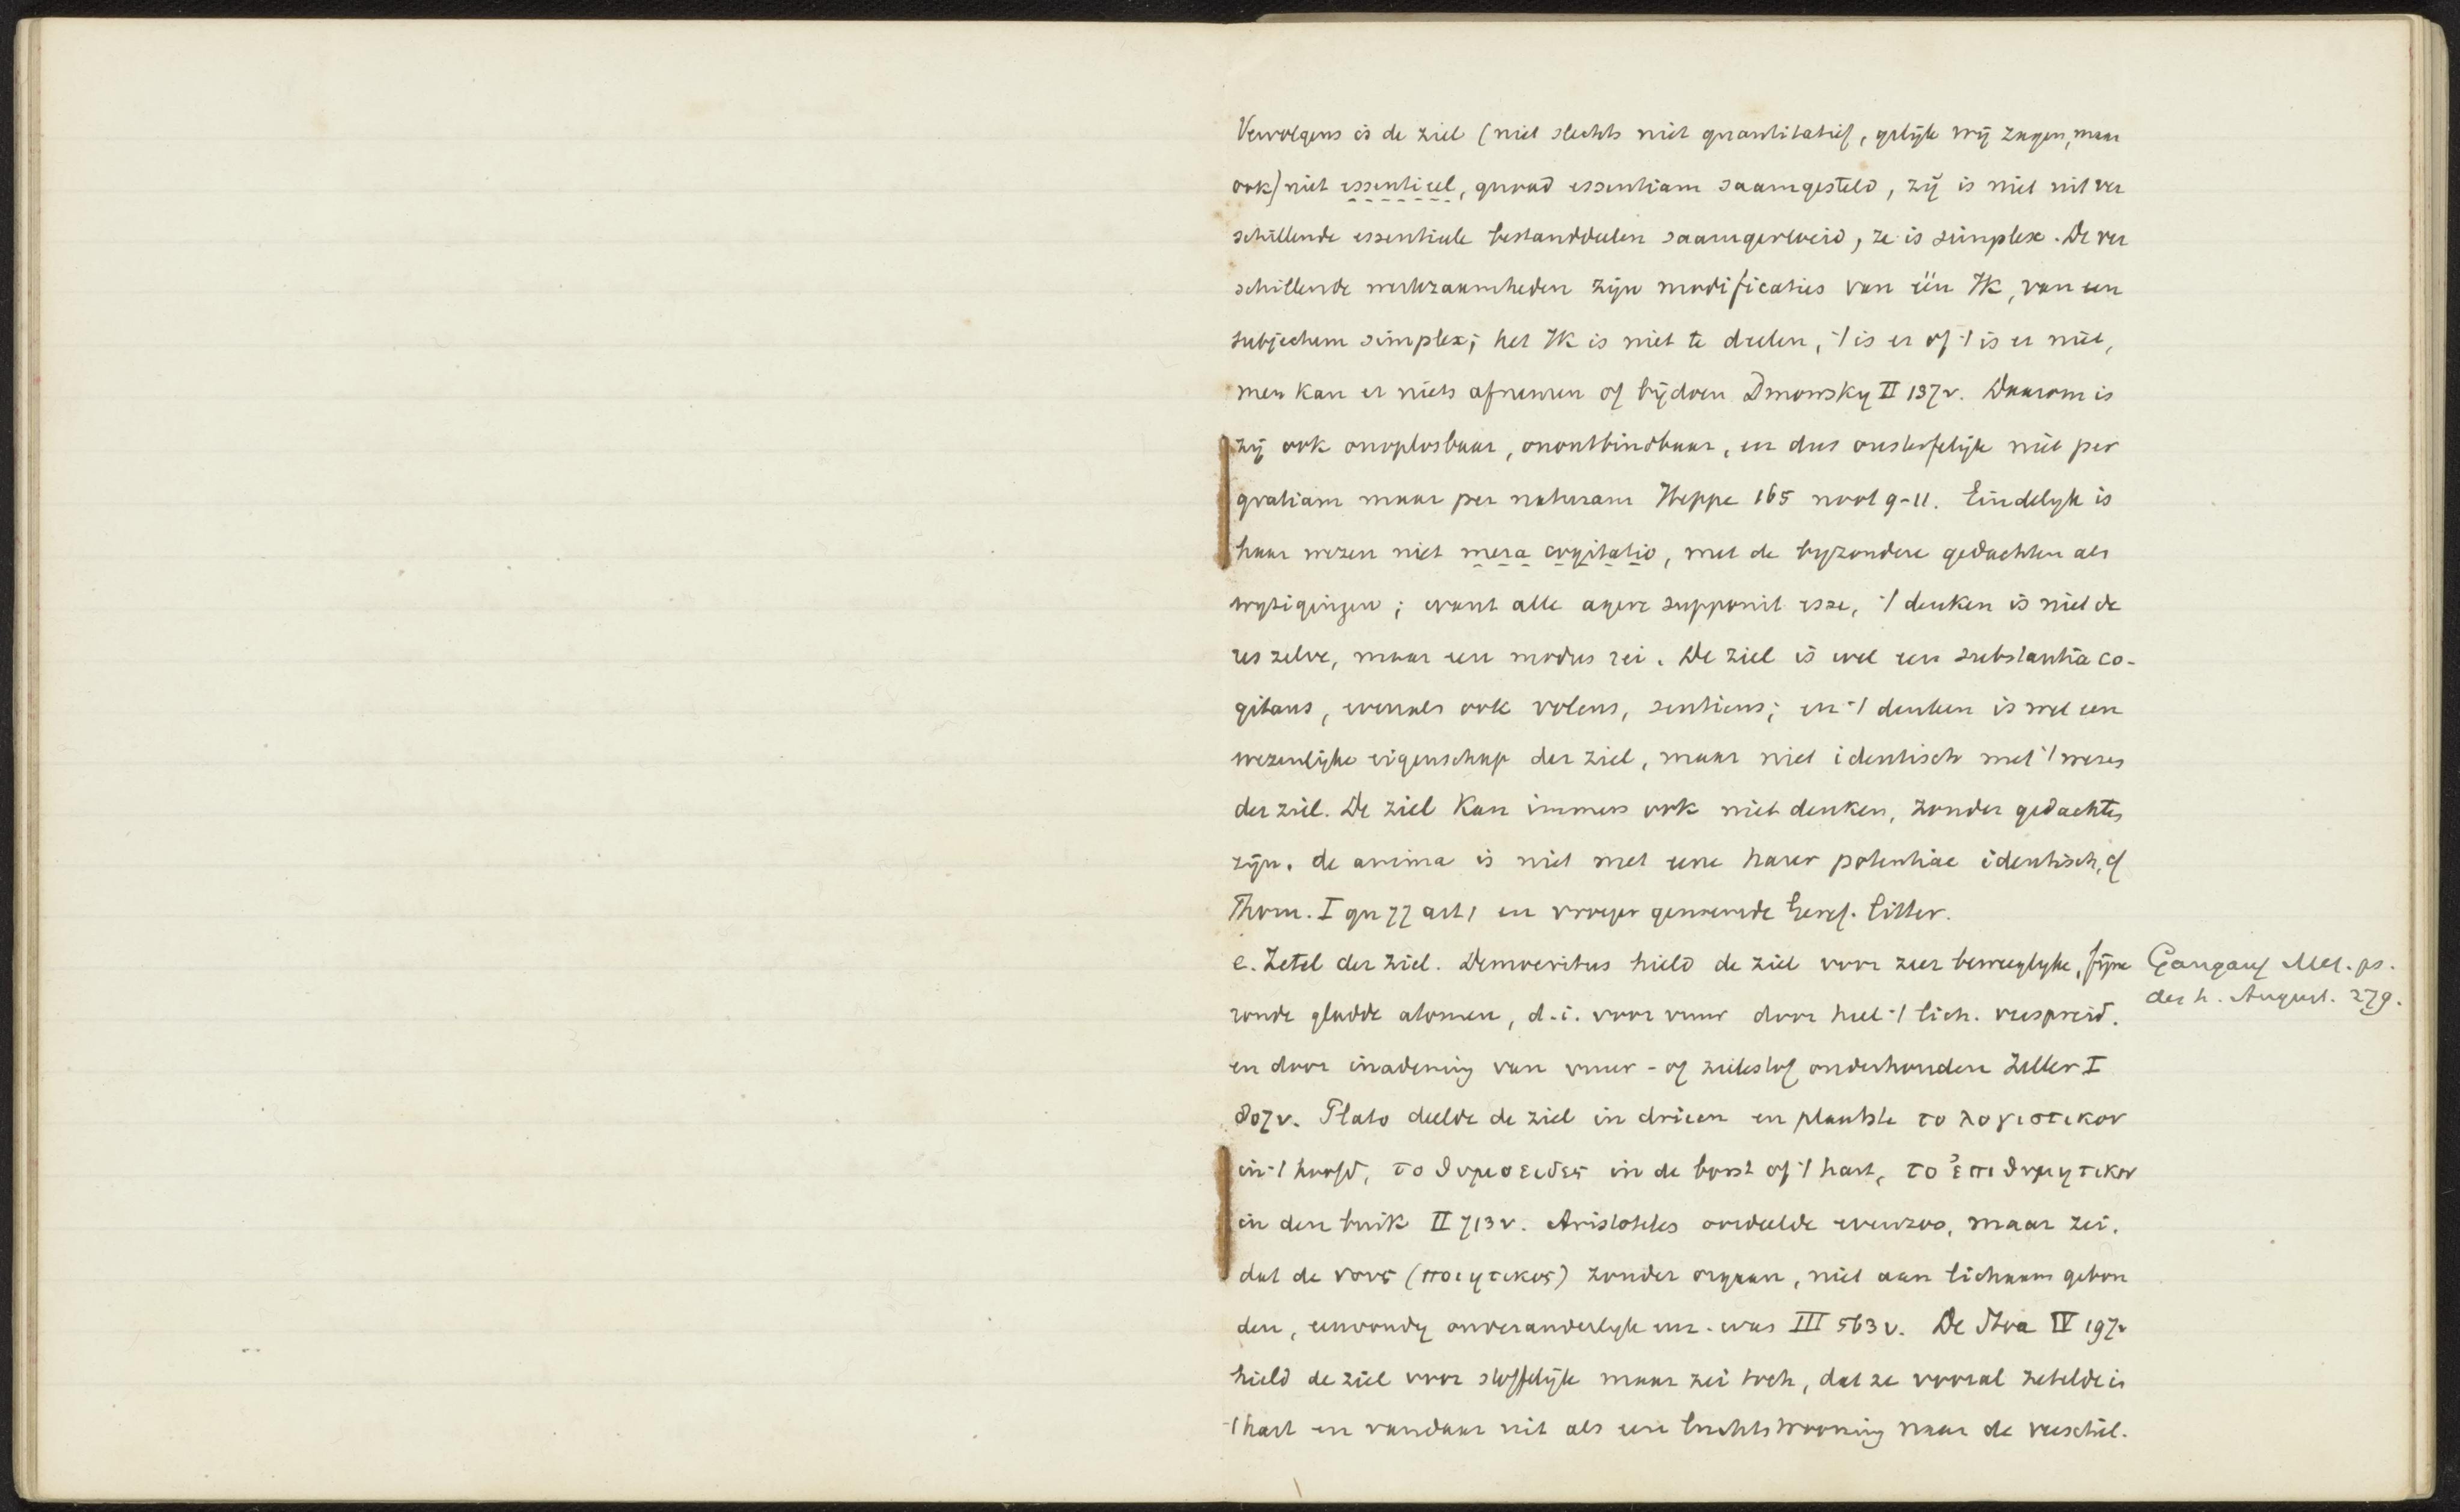 Vervolgens is de ziel (niet slechts niet quantitatief, gelijk wij zagen, maar
ook) niet essentieel, quoad essentiam saamgesteld, zij is niet uit ver
schillende essentieele bestanddeelen saamgevloeid, ze is simplex. De ver
schillende werkzaamheden zijn modificaties van één Ik, van een
subjectum simplex; het Ik is niet te deelen, 't is er of 't is er niet,
men kan er niets afnemen of bijdoen Dmowsky II 137v. Daarom is
zij ook onoplosbaar, onontbindbaar, en dus onsterfelijk niet per
gratiam maar per naturam Heppe 165 noot 9-11. Eindelyk is
haar wezen niet mera cogitatio, met de byzondere gedachten als
wyzigingen; want alle agere supponit esse, 't denken is niet de
res zelve, maar een modus rei. De ziel is wel een substantia co-
gitans, evenals ook volens, sentiens; en 't denken is wel een
wezenlijke eigenschap der ziel, maar niet identisch met 't wezen
der ziel. De ziel kan immers ook niet denken, zonder gedachten
zijn. de anima is niet met eene harer potentiae identisch, cf
Thom. I qu 77 art 1 en vroeger genoemde Geref. litter.
e. Zetel der ziel. Democritus hield de ziel voor zeer beweeglyke, fijne
ronde gladde atomen, d.i. voor vuur door heel 't lich. verspreid.
en door inademing van vuur- of zielestof onderhouden Zeller I
807v. Plato deelde de ziel in drieen en plaatste το λογιστικον
in 't hoofd, το θυμοειδες in de borst of 't hart, το ἐπιθυμητικον
in den buik II 713v. Aristoteles oordeelde evenzoo, maar zei,
dat de νους (ποιητικος) zonder orgaan, niet aan lichaam gebon
den, eenvoudig onveranderlyk enz. was III 563v. De Stoa IV 197v
hield de ziel voor stoffelijk maar zei toch, dat ze vooral zetelde in
't hart en vandaar uit als een luchtstrooming naar de verschil.
Gangauf Met. ps.
des h. August. 279.